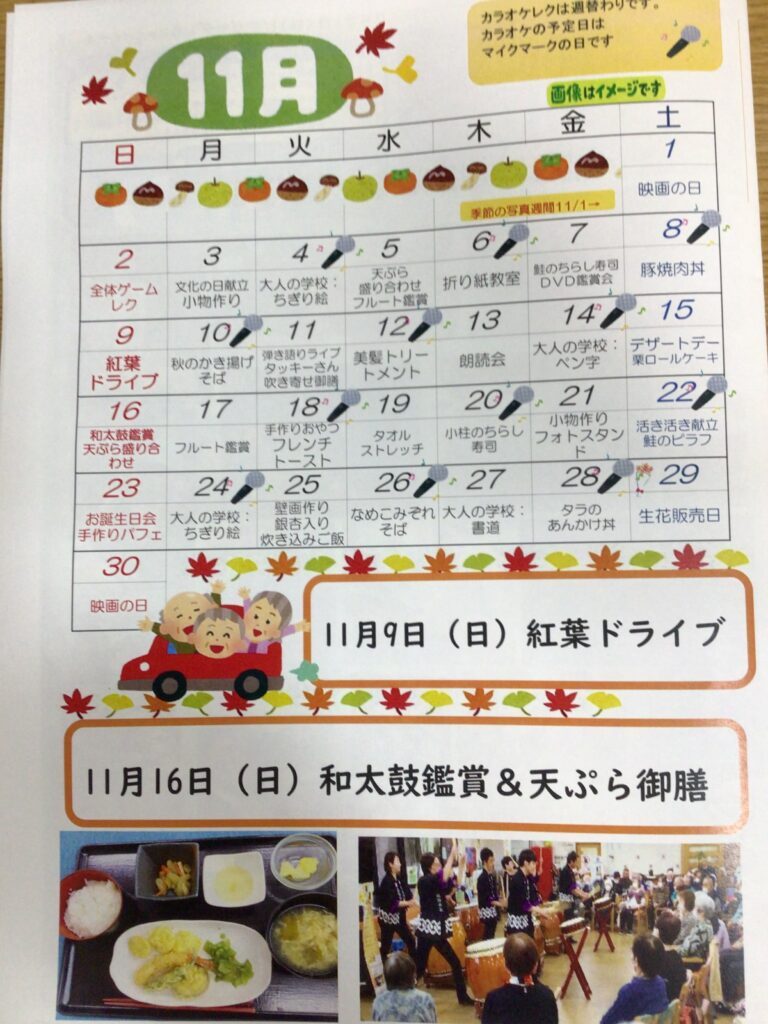 カラオケレクは週替わりです。
カラオケの予定日は
マイクマークの日です
11月
画像はイメージです
日 月 火 水 木 金 土
1
映画の日
季節の写真週間11/1→
2 3 4 5 6 7 8
全体ゲーム
レク
文化の日献立
小物作り
大人の学校：
ちぎり絵
天ぷら
盛り合わせ
フルート鑑賞
折り紙教室
鮭のちらし寿司
DVD鑑賞会
豚焼肉丼
9 10 11 12 13 14 15
紅葉
ドライブ
秋のかき揚げ
そば
弾き語りライブ
タッキーさん
吹き寄せ御膳
美髪トリー
トメント
朗読会
大人の学校：
ペン字
デザートデー
栗ロールケーキ
16 17 18 19 20 21 22
和太鼓鑑賞
天ぷら盛り合
わせ
フルート鑑賞
手作りおやつ
フレンチ
トースト
タオル
ストレッチ
小柱のちらし
寿司
小物作り
フォトスタン
ド
活き活き献立
鮭のピラフ
23 24 25 26 27 28 29
お誕生日会
手作りパフェ
大人の学校：
ちぎり絵
壁画作り
銀杏入り
炊き込みご飯
なめこみぞれ
そば
大人の学校：
書道
タラの
あんかけ丼
生花販売日
30
映画の日
11月9日（日）紅葉ドライブ
11月16日（日）和太鼓鑑賞＆天ぷら御膳